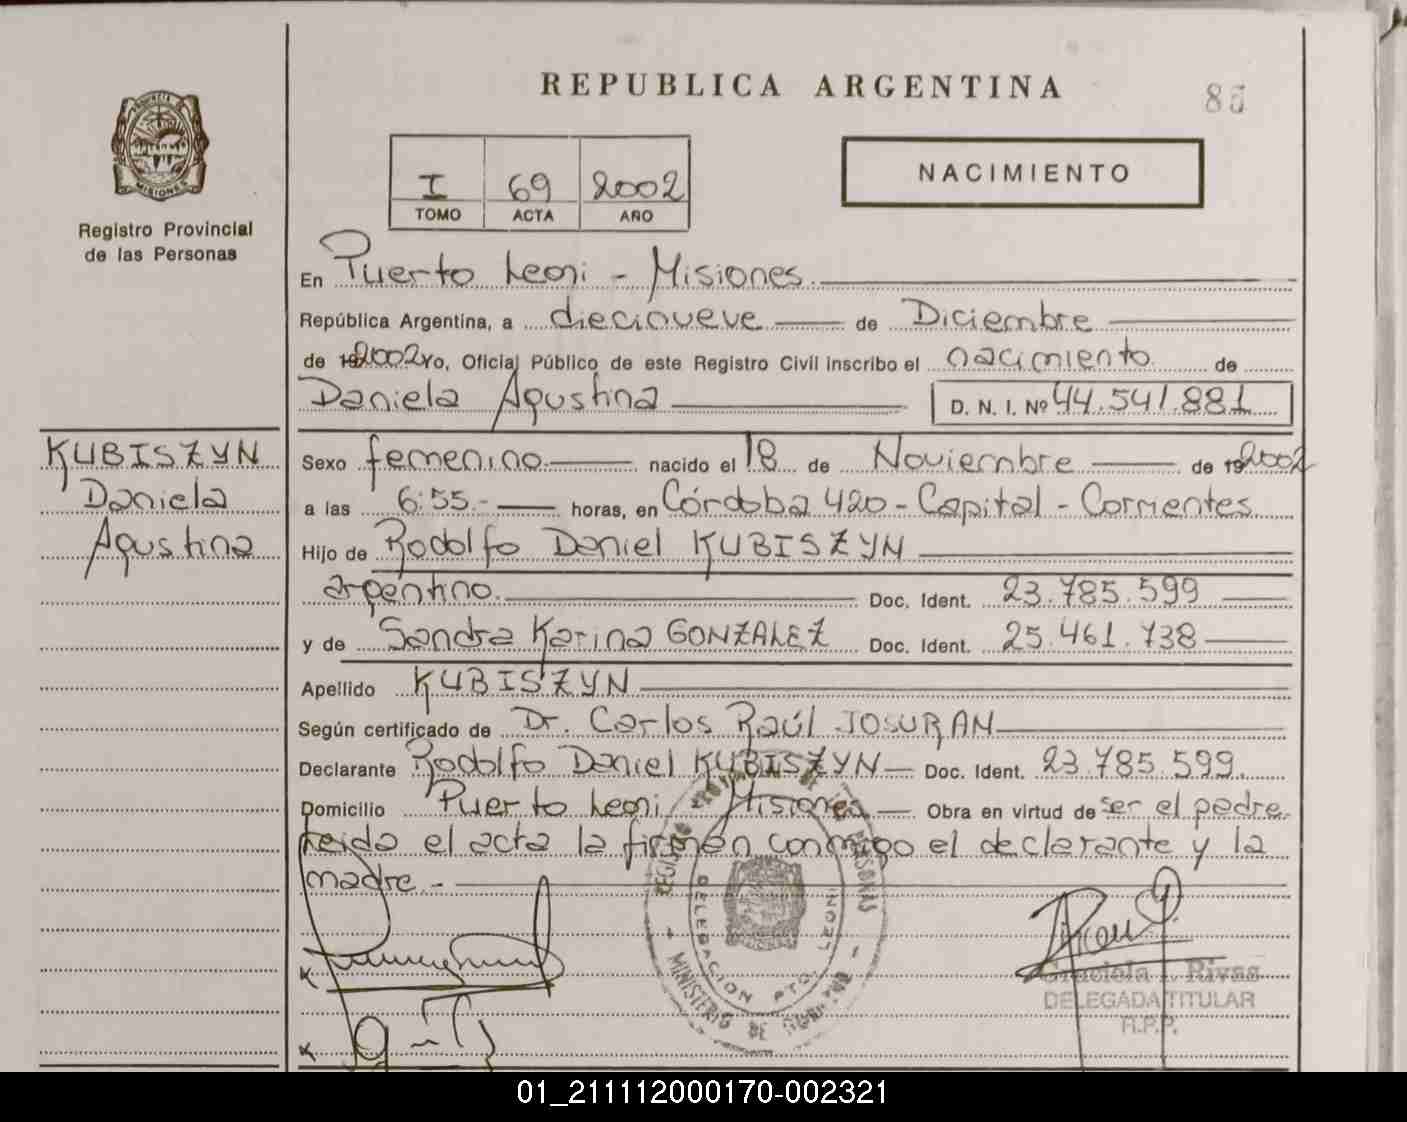 REPUBLICA ARGENTINA
85
PROVINCIA DE MISIONES
Registro Provincial
de las Personas
I 69 2002
TOMO ACTA AÑO
NACIMIENTO
En Puerto Leoni - Misiones
República Argentina, a diecinueve de Diciembre
de 2002 Yo, Oficial Público de este Registro Civil inscribo el nacimiento de
Daniela Agustina D. N. I. Nº 44.541.881
KUBISZYN
Daniela
Agustina
Sexo femenino nacido el 18 de Noviembre de 192002
a las 6:55.- horas, en Córdoba 420 - Capital - Corrientes
Hijo de Rodolfo Daniel KUBISZYN
argentino. Doc. Ident. 23.785.599
y de Sandra Karina GONZALEZ Doc. Ident. 25.461.738
Apellido KUBISZYN
Según certificado de Dr. Carlos Raúl JOSURAN
Declarante Rodolfo Daniel KUBISZYN Doc. Ident. 23.785.599.
Domicilio Puerto Leoni - Misiones Obra en virtud de ser el padre.
Leida el acta la firman conmigo el declarante y la
madre.-
REGISTRO PROVINCIAL DE LAS PERSONAS
DELEGACION PTO. LEONI
- MINISTERIO DE GOBIERNO -
Graciela I. Rivas
DELEGADA TITULAR
R.P.P.
01_211112000170-002321